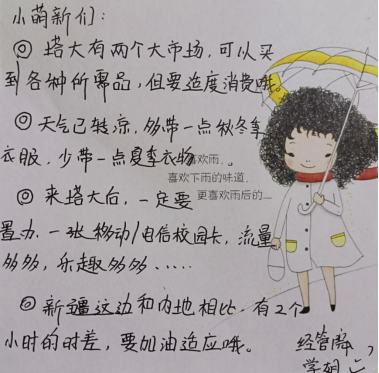 小萌新们：
◎ 塔大有两个大市场，可以买
到各种所需品，但要适度消费哦。
◎ 天气已转凉，多带一点秋冬季
衣服，少带一点夏季衣物
喜欢雨．。
喜欢下雨的味道．
◎ 来塔大后，一定要
更喜欢雨后的．．．
置办一张移动/电信校园卡，流量
多多，乐趣多多……
◎ 新疆这边和内地相比，有2个
小时的时差，要加油适应哦。
经管院
学姐